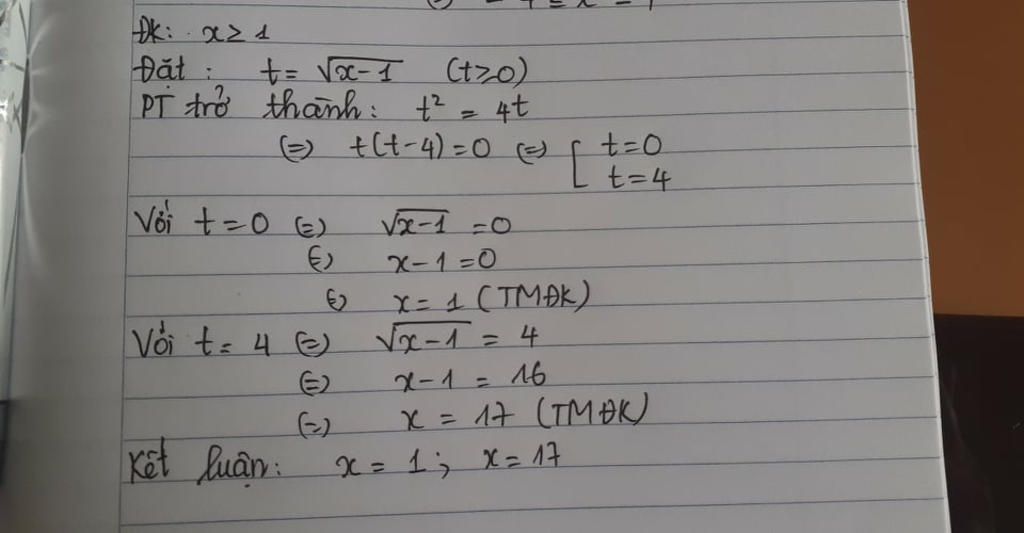 ĐK: x ≥ 1
Đặt: t = √x-1 (t≥0)
PT trở thành: t² = 4t
(=) t(t-4)=0 (=) [ t=0
t=4
Với t=0 (=) √x-1 =0
(=) x-1=0
(=) x=1 (TMĐK)
Với t= 4 (=) √x-1 = 4
(=) x-1 = 16
(=) x = 17 (TMĐK)
Kết luận: x = 1; x=17